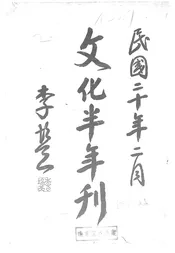 民國二十年二月
文化半年刊
李蒸